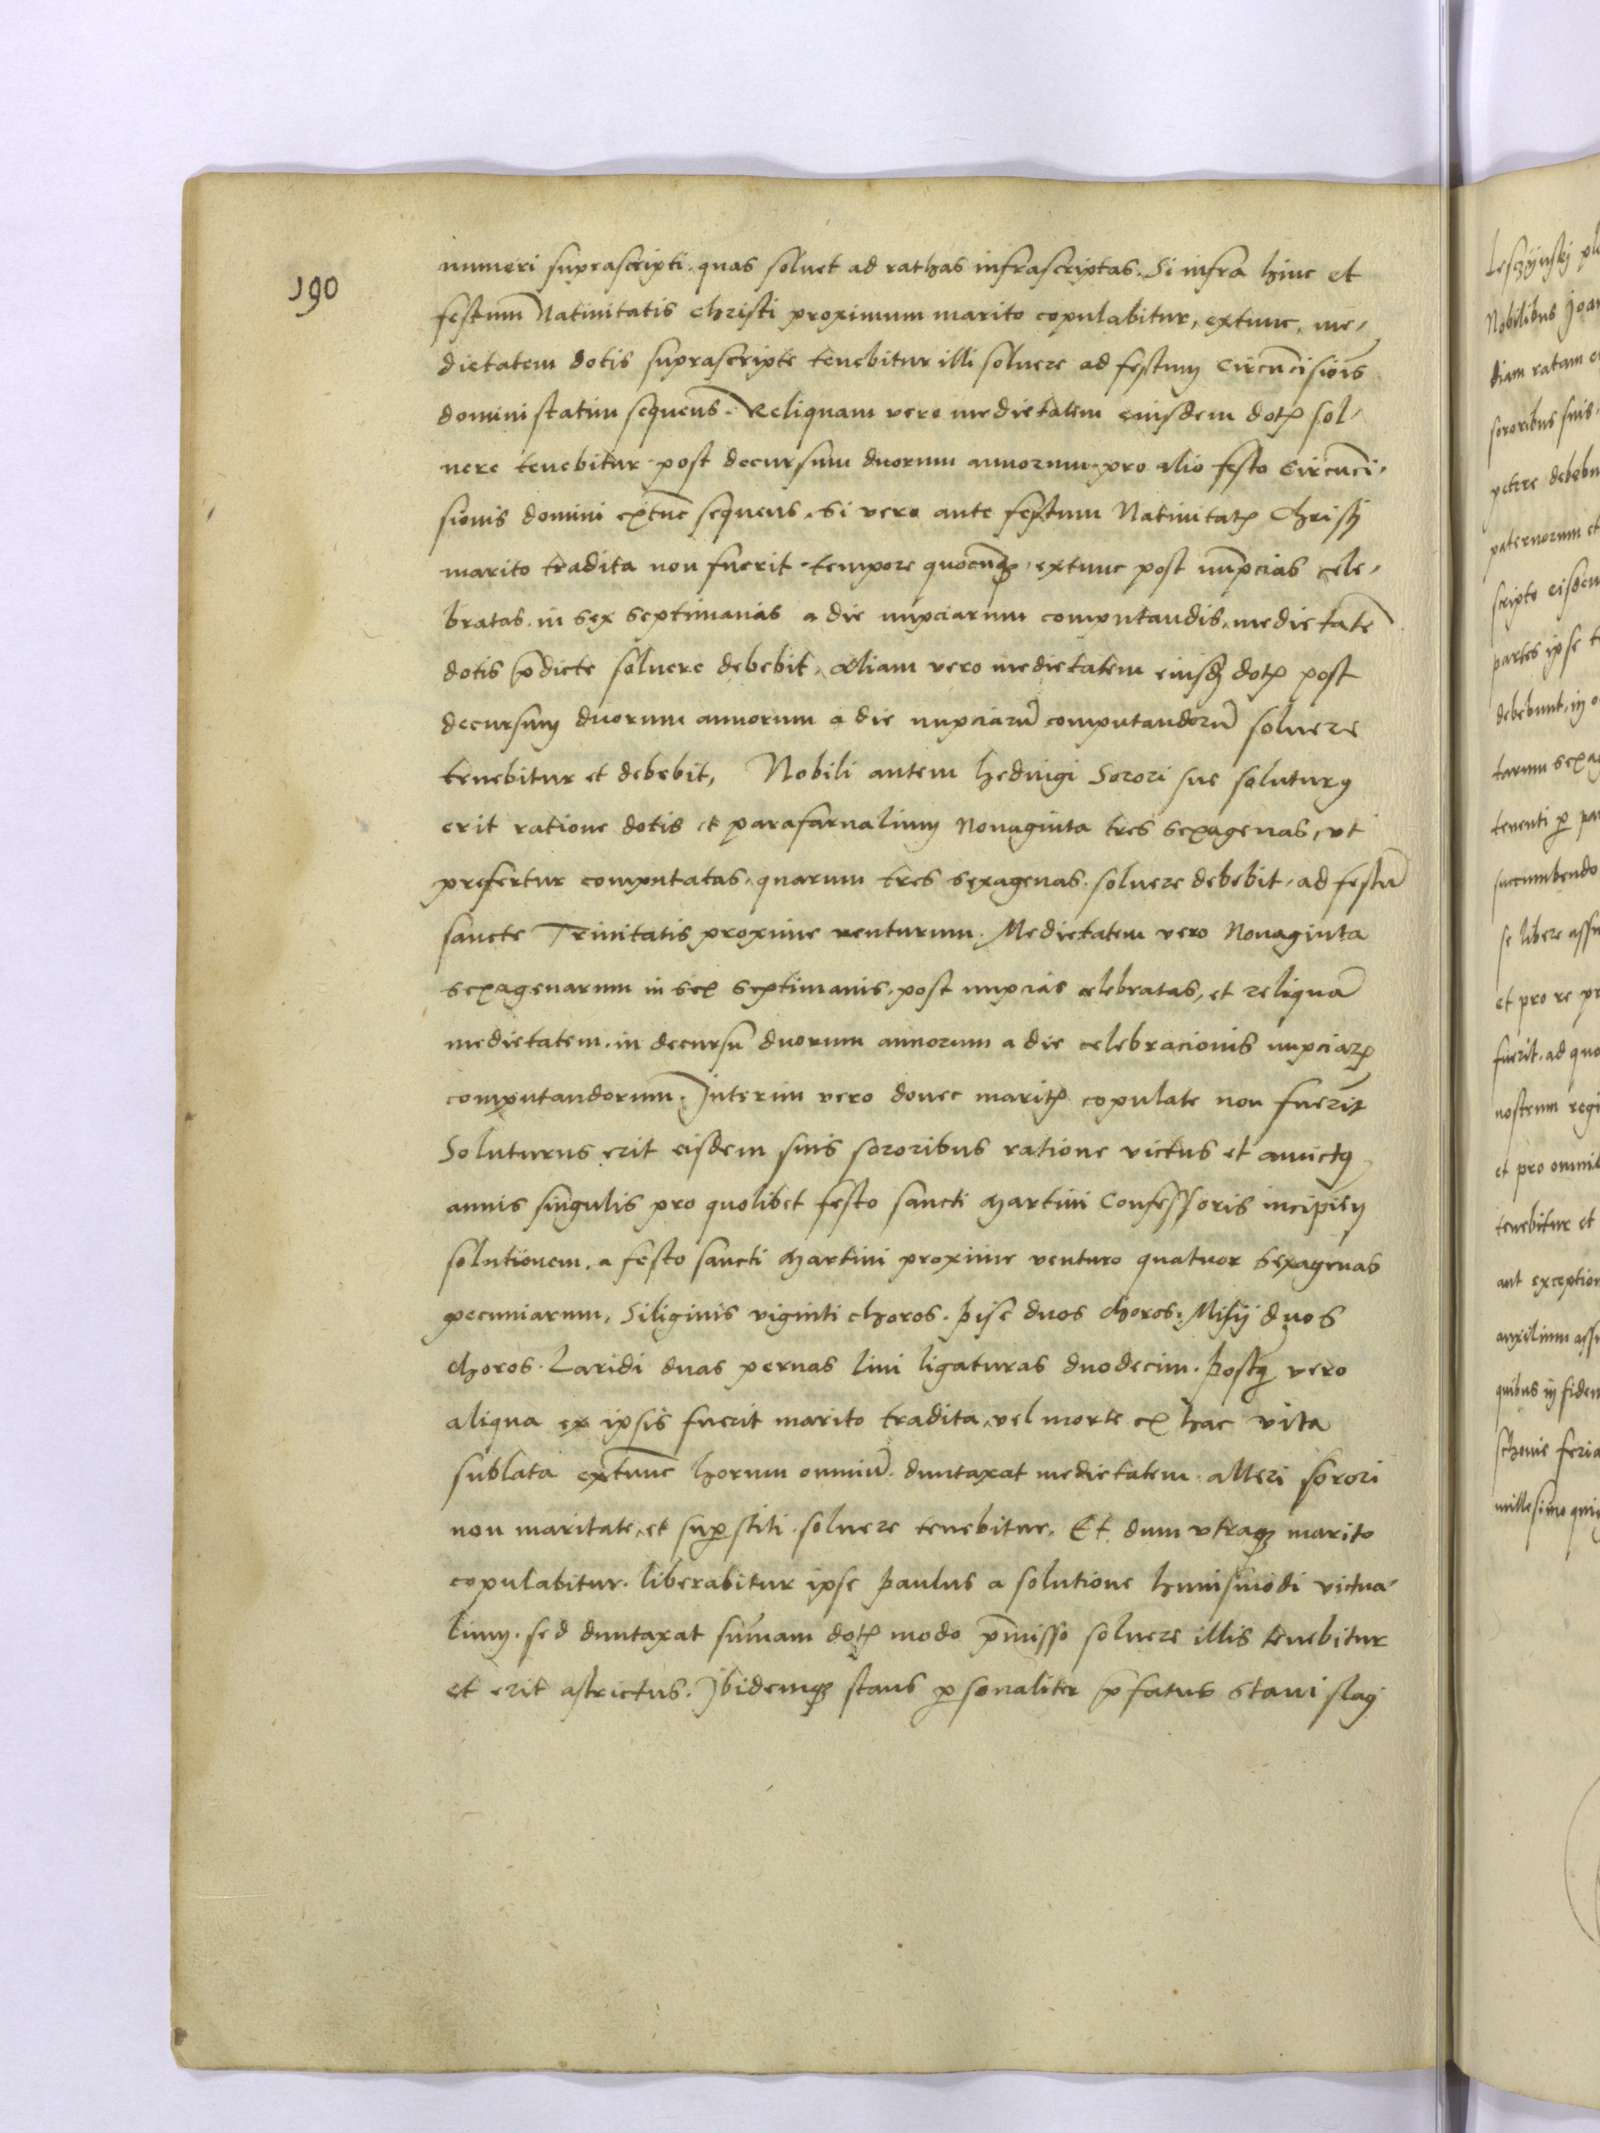 190
numeri suprascripti. quas soluet ad rathas infrascriptas. Si infra hinc et
festum Natiuitatis Christi proximum marito copulabitur, extunc, me-
dietatem dotis suprascripte tenebitur illi soluere ad festum Circūcisiōis
domini statim sequens. Reliquam vero medietatem eiusdem dotꝭ sol-
uere tenebitur post decursum duorum annorum pro alio festo Circūci-
sionis domini extūc sequens, Si vero ante festum Natiuitatꝭ Christi
marito tradita non fuerit tempore quocūqꝫ, extunc post nūpcias cele-
bratas, in sex septimanis a die nupciarum computandis, medietatē
dotis p̄dicte soluere debebit, aliam vero medietatem eiusdꝫ dotꝭ post
decursum duorum annorum a die nupciarū computandorū soluere
tenebitur et debebit, Nobili autem heduigi Sorori sue soluturꝰ
erit ratione dotis et parafarnalium Nonaginta tres sexagenas, vt
prefertur computatas, quarum tres sexagenas soluere debebit, ad festū
sancte Trinitatis proxime venturum. Medietatem vero Nonaginta
sexagenarum in sex septimanis, post nupcias celebratas, et reliquā
medietatem, in decursu duorum annorum a die celebracionis nupciarꝭ
computandorum. Interim vero donec maritꝭ copulate non fuerīt
Soluturus erit eisdem suis sororibus ratione victus et amictꝰ
annis singulis pro quolibet festo sancti Martini Confessoris incipien
solutionem, a festo sancti Martini proxime venturo quatuor sexagenas
pecuniarum, Siliginis viginti choros. Pise duos choros, Milij duos
choros. Laridi duas pernas lini ligaturas duodecim. Postqꝫ vero
aliqua ex ipsis fuerit marito tradita, vel morte ex hac vita
sublata extunc horum omniū. duntaxat medietatem alteri sorori
non maritate, et sup̱stiti soluere tenebitur. Et dum vtraqꝫ marito
copulabitur. liberabitur ipse Paulus a solutione huiusmodi victua-
lium. sed duntaxat sum̄am dotꝭ modo p̄misso soluere illis tenebitur
et erit astrictus. Ibidemqꝫ stans p̱sonaliter p̄fatus Stanislaꝰ
Nobilibus
sororibus suis
se libere
et pro re
fuerit. ad quo
tenebitur et